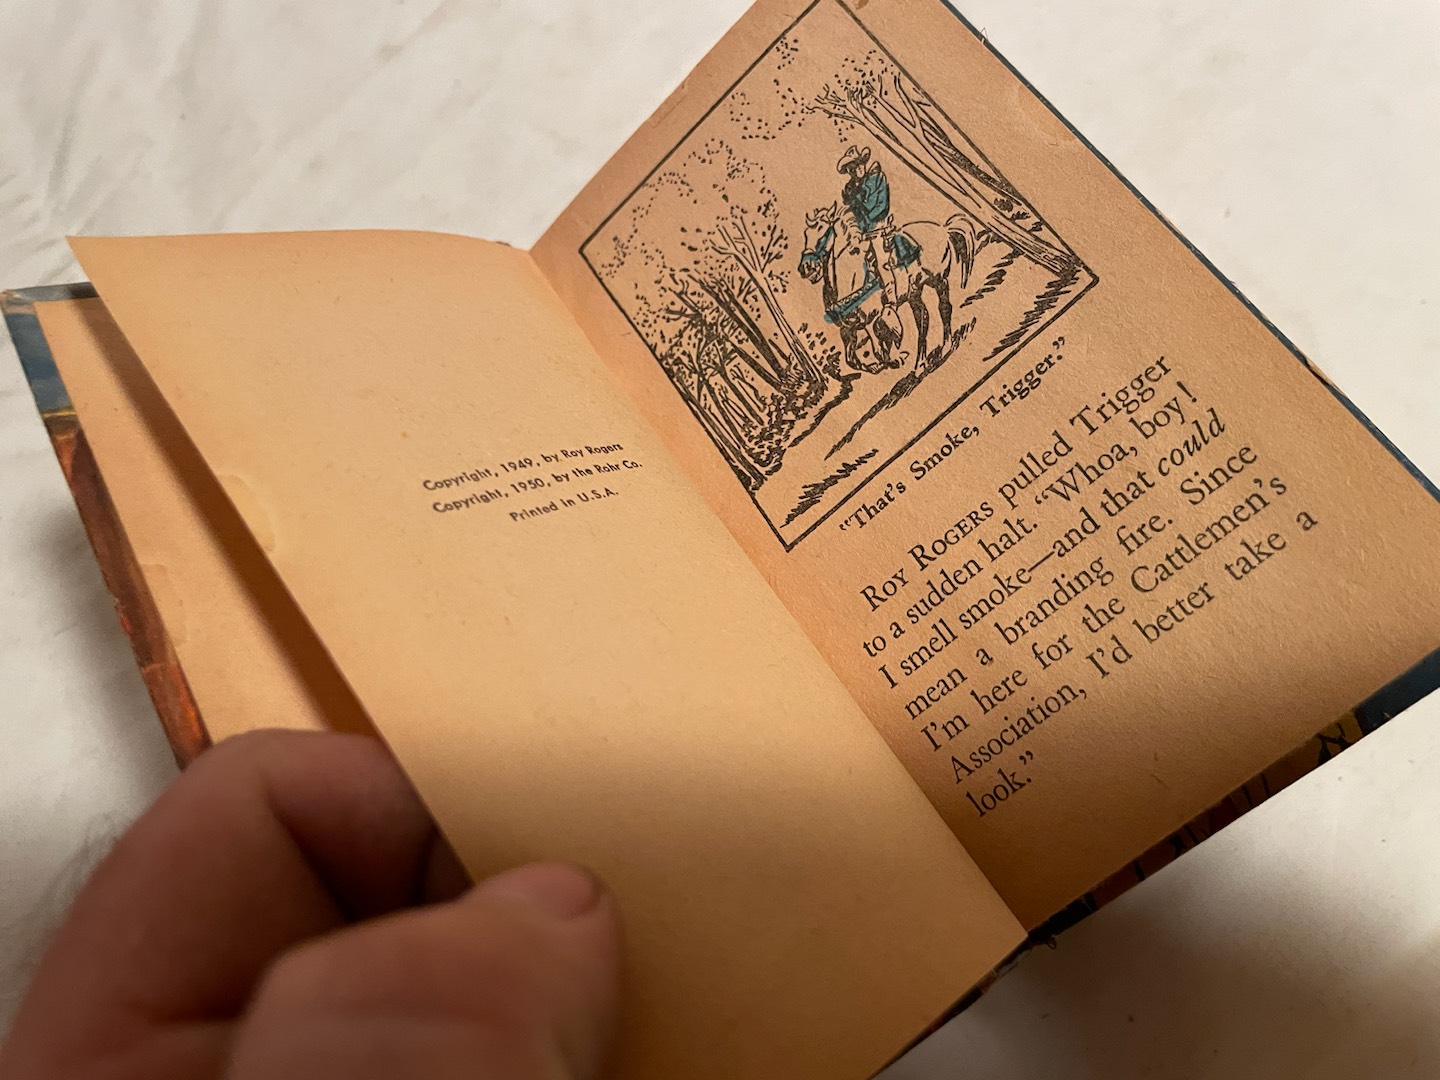 Copyright, 1949, by Roy Rogers
Copyright, 1950, by the Rohr Co.
Printed in U.S.A.
"That's Smoke, Trigger."
ROY ROGERS pulled Trigger
to a sudden halt. "Whoa, boy!
I smell smoke—and that could
mean a branding fire. Since
I'm here for the Cattlemen's
Association, I'd better take a
look."